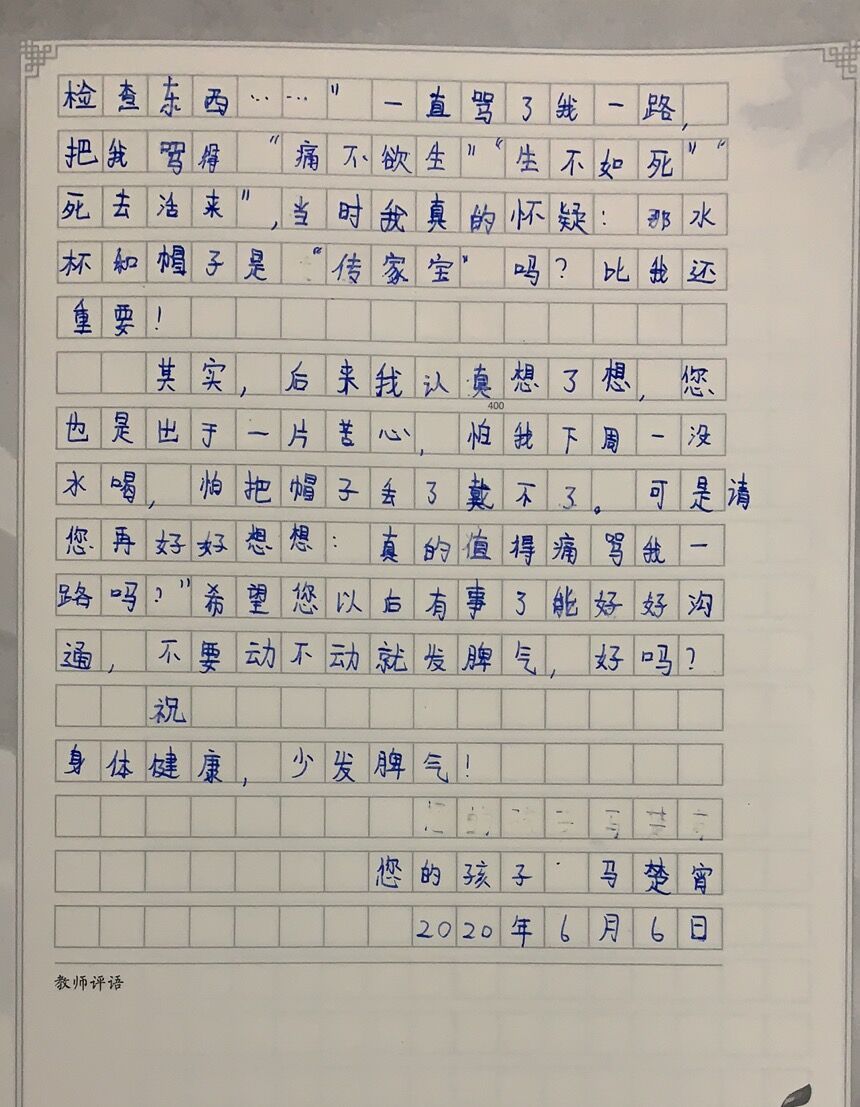 检查东西……”一直骂了我一路,
把我骂得“痛不欲生”“生不如死”“
死去活来”,当时我真的怀疑:那水
杯和帽子是“传家宝”吗?比我还
重要!
其实,后来我认真想了想,您
400
也是出于一片苦心,怕我下周一没
水喝,怕把帽子丢了戴不了。可是请
您再好好想想:真的值得痛骂我一
路吗?”希望您以后有事了能好好沟
通,不要动不动就发脾气,好吗?
祝
身体健康,少发脾气!
您的孩子·马楚宵
2020年6月6日
教师评语